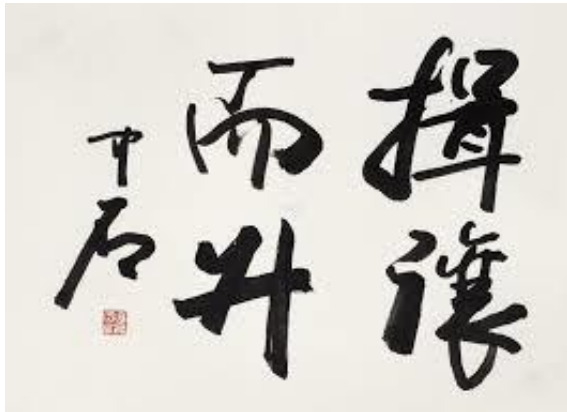 揖讓
而升
中石